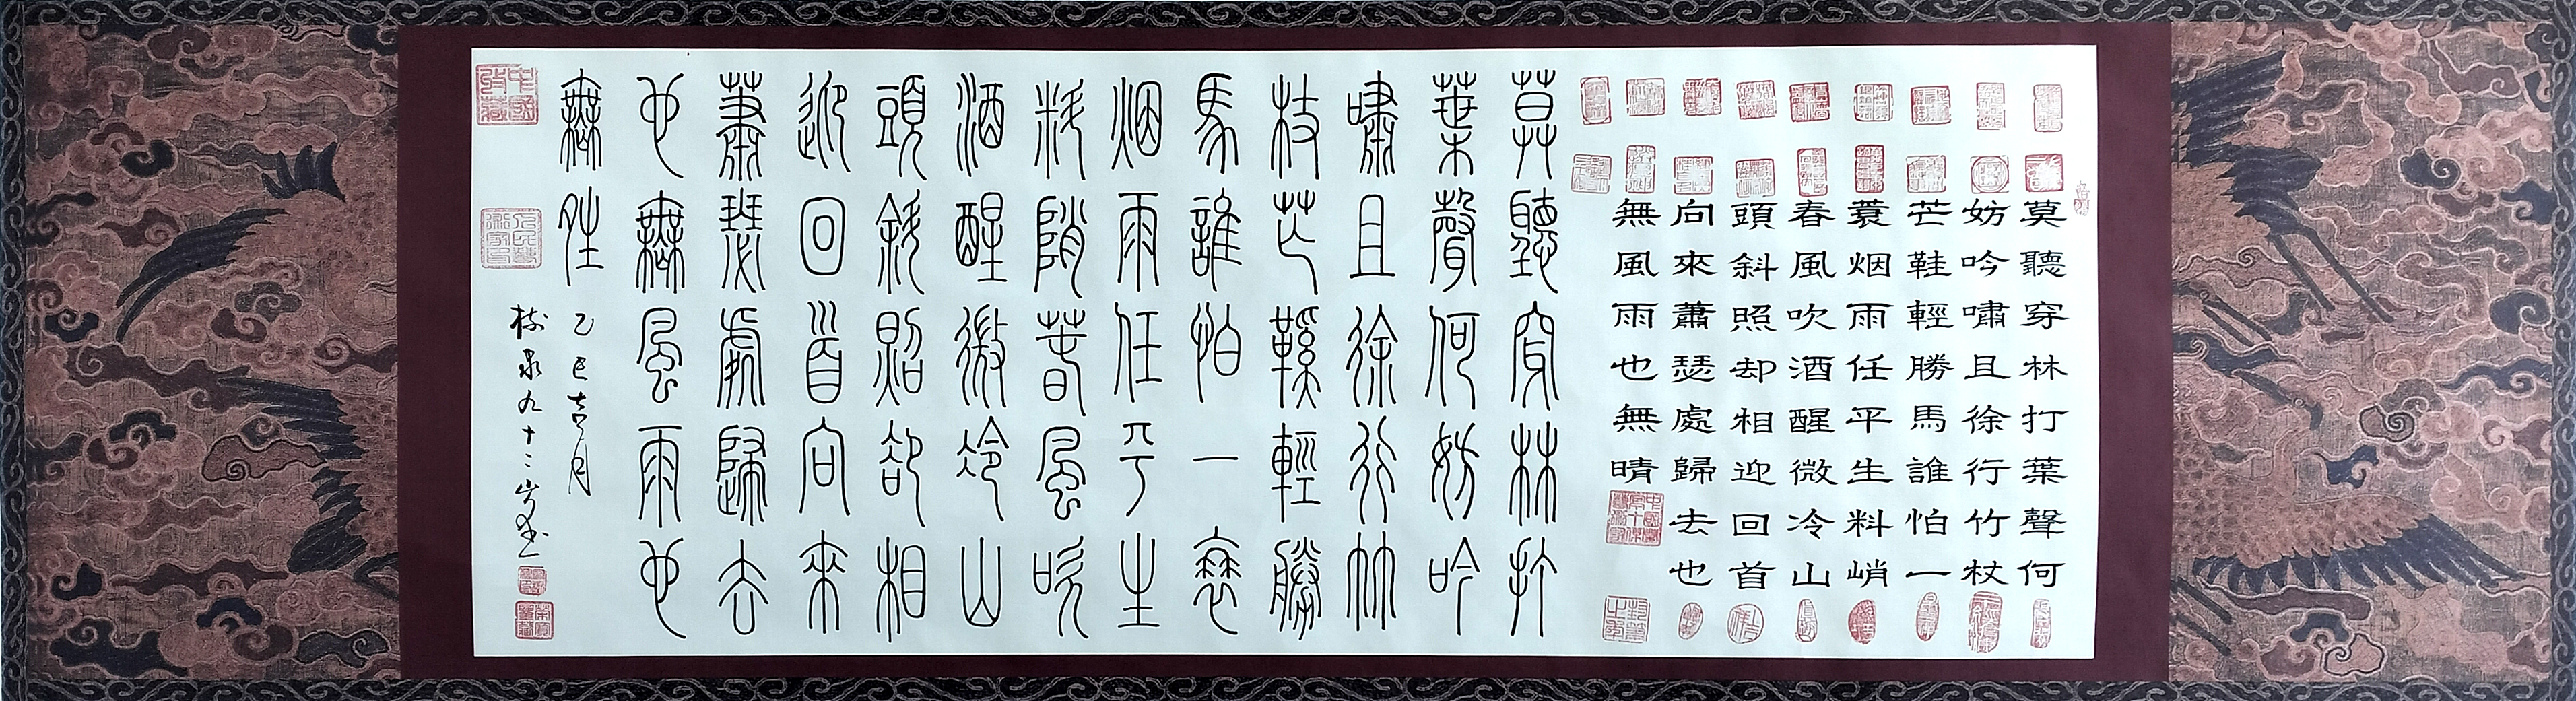 莫聽穿林打葉聲何
妨吟嘯且徐行竹杖
芒鞋輕勝馬誰怕一
蓑烟雨任平生料峭
春風吹酒醒微冷山
頭斜照却相迎回首
向來蕭瑟處歸去也
無風雨也無晴
莫聽穿林打
葉聲何妨吟
嘯且徐行竹
杖芒鞋輕勝
馬誰怕一蓑
烟雨任平生
料陗春風吹
酒醒微冷山
頭斜照卻相
迎回首向來
蕭瑟處歸去
也無風雨也
無晴
乙巳吉月
樹泉九十二岁书
中國收藏